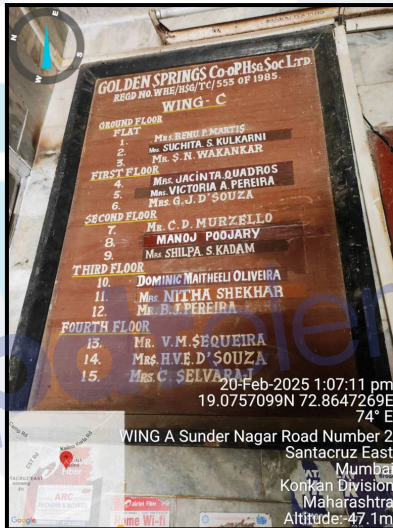 N
E
S
W
GOLDEN SPRINGS CO-OP. HSG. SOC. LTD.
REGD NO. WHE/HSG/TC/555 OF 1985.
WING - C
GROUND FLOOR
FLAT
1. MRS. BENU. P. MARTIS
2. MRS. SUCHITA. S. KULKARNI
3. MR. S. N. WAKANKAR
FIRST FLOOR
4. MRS. JACINTA. QUADROS
5. MRS. VICTORIA A. PEREIRA
6. MRS. G. J. D'SOUZA
SECOND FLOOR
7. MR. C. D. MURZELLO
8. MANOJ POOJARY
9. MRS. SHILPA. S. KADAM
THIRD FLOOR
10. DOMINIC MAITHEELI OLIVEIRA
11. MRS. NITHA SHEKHAR
12. MR. B. J. PEREIRA
FOURTH FLOOR
13. MR. V. M. SEQUEIRA
14. MRS. H. V. E. D'SOUZA
15. MRS. C. SELVARAJ
20-Feb-2025 1:07:11 pm
19.0757099N 72.8647269E
74° E
WING A Sunder Nagar Road Number 2
Santacruz East
Mumbai
Konkan Division
Maharashtra
Altitude:-47.1m
CST Rd
Kalina Vidya Rd
Google
ARC
airtel Fiber
Home Wi-fi